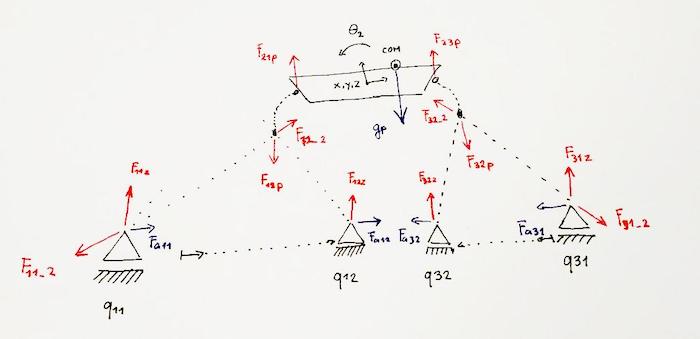 θ₂
COM
F₂₁p
F₂₃p
x,y,z
gp
F₃₂_2
F₁₂p
F₃₂p
F₁₁z
F₁₂z
F₃₂z
F₃₁z
Fa11
Fa12
Fa32
Fa31
F₁₁_2
q11
q12
q32
q31